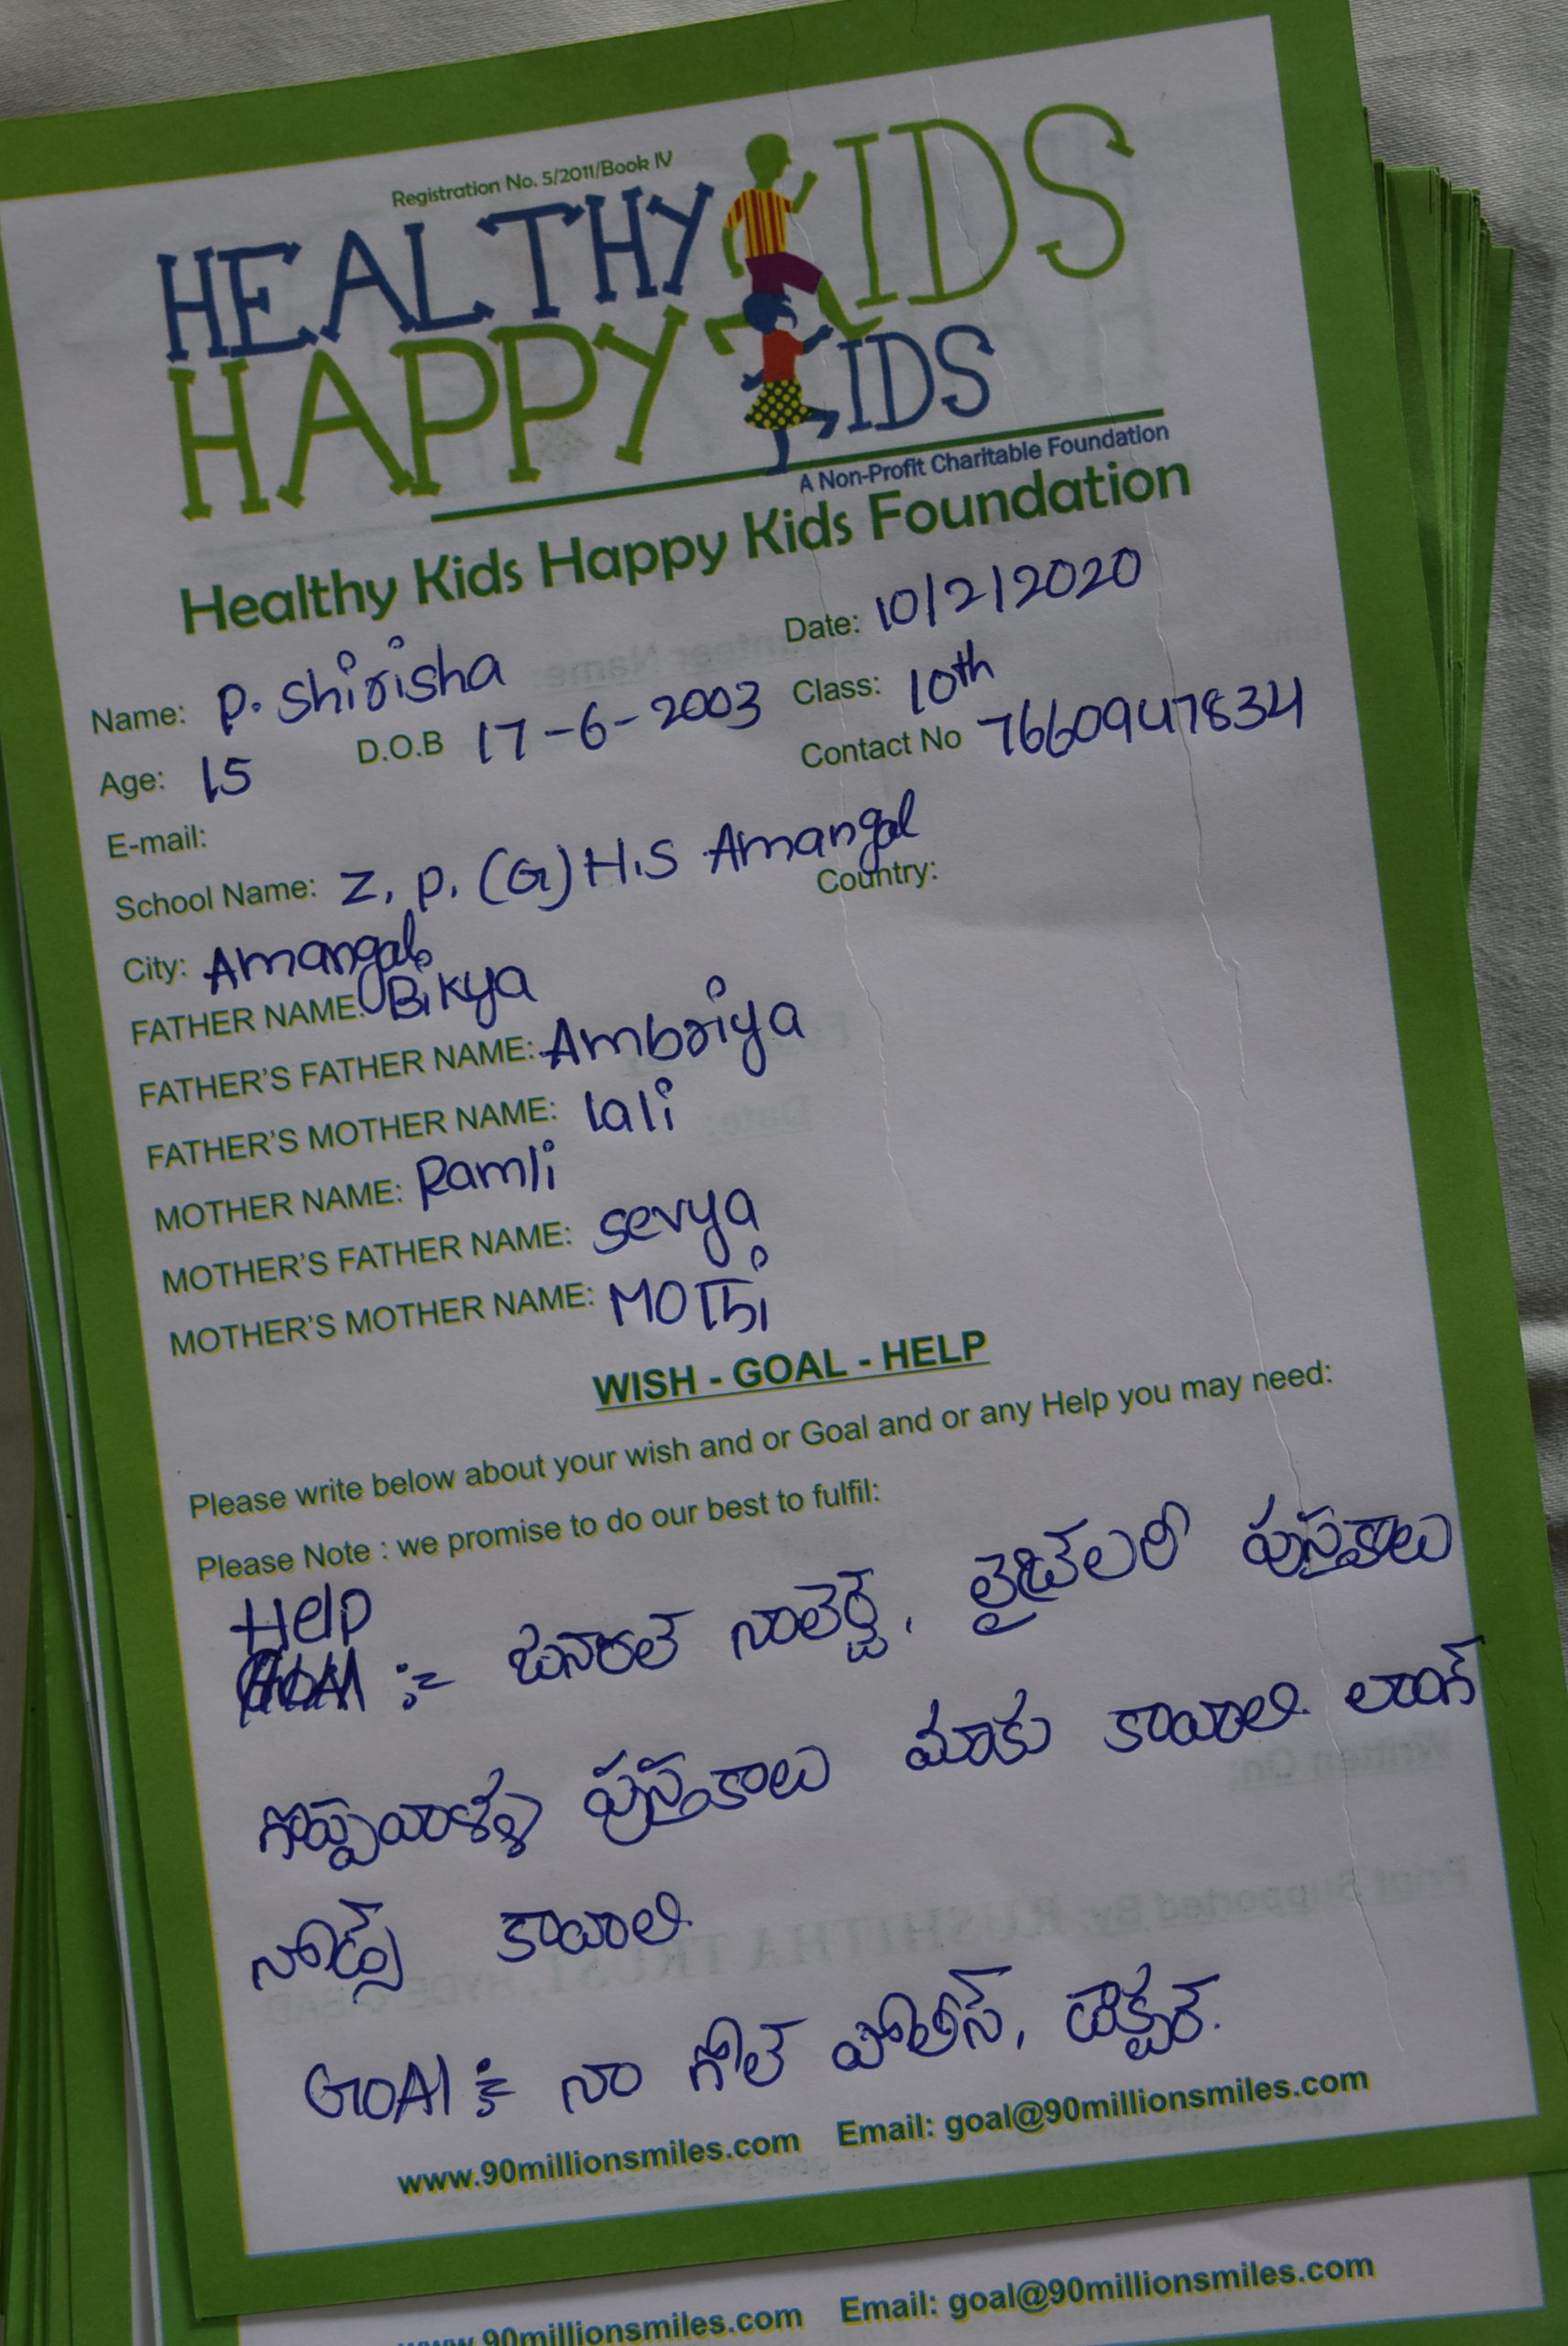 Registration No. 5/2011/Book IV
HEALTHY KIDS
HAPPY KIDS
A Non-Profit Charitable Foundation
Healthy Kids Happy Kids Foundation
Date: 10/2/2020
Name: P. Shirisha
Class: 10th
Age: 15 D.O.B 17-6-2003
Contact No 7660947834
E-mail:
School Name: Z. P. (G) H.S Amangal
City: Amangal Country:
FATHER NAME: Bikya
FATHER'S FATHER NAME: Ambriya
FATHER'S MOTHER NAME: lali
MOTHER NAME: Ramli
MOTHER'S FATHER NAME: sevya
MOTHER'S MOTHER NAME: MOThi
WISH - GOAL - HELP
Please write below about your wish and or Goal and or any Help you may need:
Please Note : we promise to do our best to fulfil:
Help
:- జనరల్ నాలెడ్జ్, లైబ్రెలరీ పుస్తకాలు
గొప్పవాళ్ళ పుస్తకాలు మాకు కావాలి. లాంగ్
నోట్స్ కావాలి.
GOAl :- నా గోల్ పోలీస్, డాక్టర్.
www.90millionsmiles.com Email: goal@90millionsmiles.com
www.90millionsmiles.com Email: goal@90millionsmiles.com